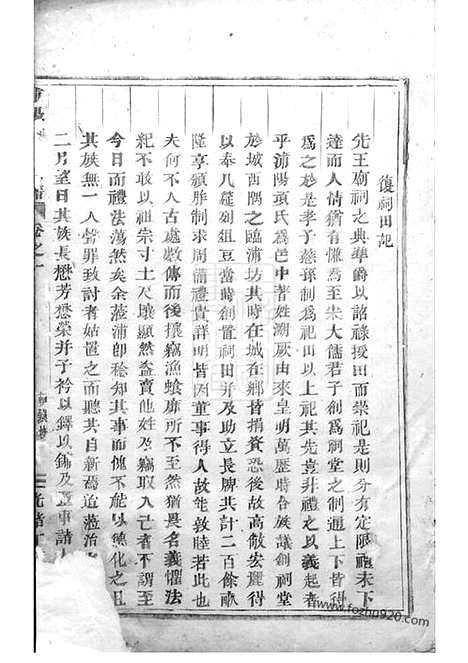 復祠田記
先王廟祠之典準爵以詔祿授田而崇祀是則分有定限禮未下
達而人情猶有慊焉至宋大儒君子創為祠堂之制通上下皆得
為之於是孝子慈孫制為祀田以上祀其先意非禮之以義起者
乎浦陽項氏為邑中著姓溯厥由來皇明萬歷時合族議創祠堂
於城西隅之臨浦坊其時在城在鄉皆捐資恐後故高敞宏麗得
以奉几筵列俎豆當時創置祠田并及助立長牌共計二百餘畝
隆享頒胙制求周備禮貴詳明皆因董事得人故能敦睦若此也
夫何不人古處數傳而後攘竊漁蝕靡所不至然猶畏名義懼法
紀不敢以祖宗寸土尺壤顯然盜賣他人竊取入己者不謂至
今日而禮法蕩然矣余蒞浦即稔知其事而愧不能以德化之且
其族無一人聲罪致討者姑置之而聽其自新焉迨蒞治
二月望日其族長懋芳懋榮并子衿以鐸以鏞及董事諸人
卷之一
先王廟